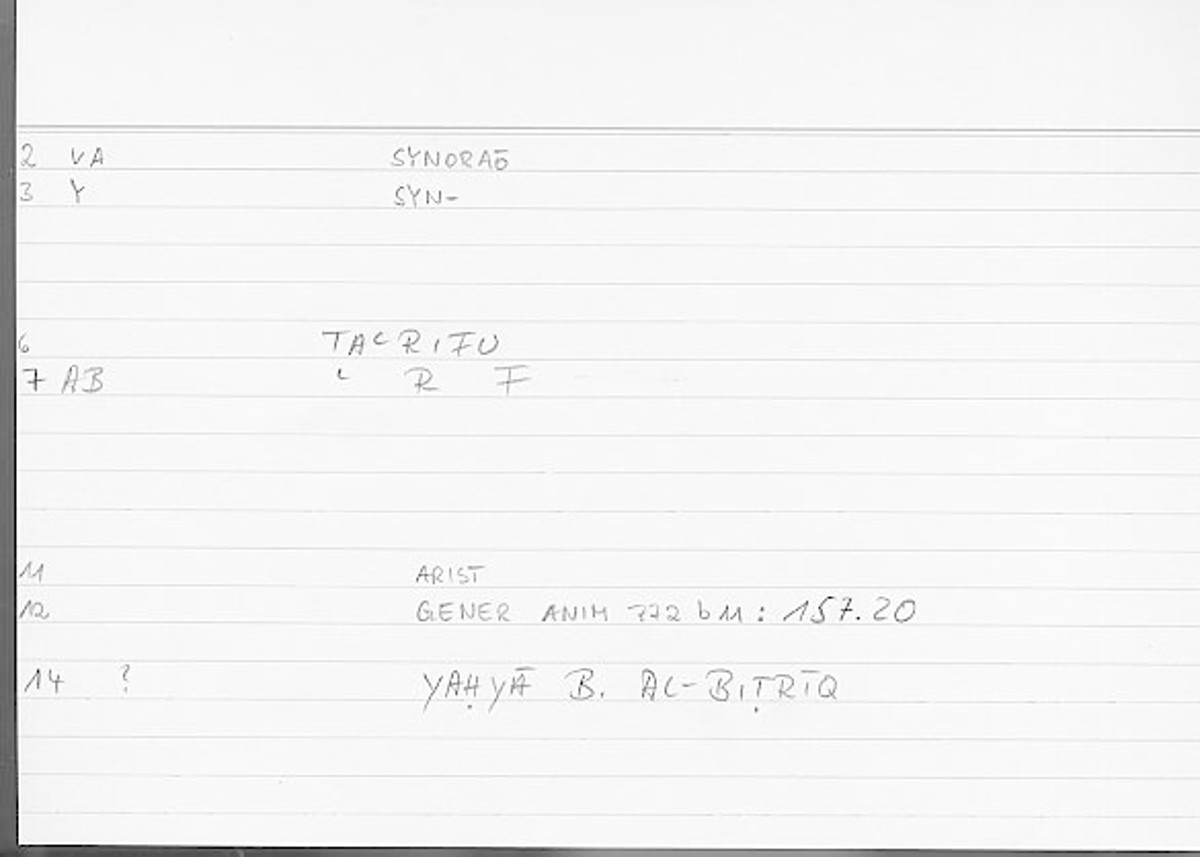 2 VA SYNORAŌ
3 Y SYN-
6 TAʿRIFU
7 AB ʿ R F
11 ARIST
12 GENER ANIM 772 b 11 : 157.20
14 ? YAḤYĀ B. AL-BIṬRĪQ